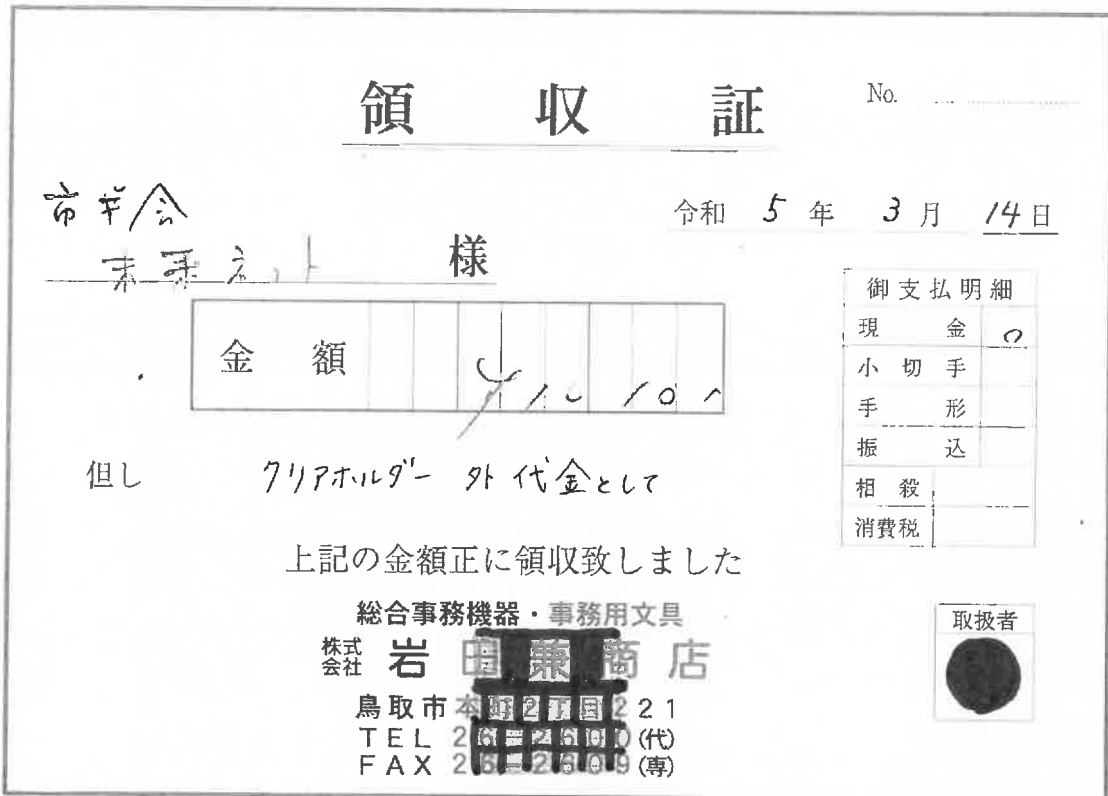 領収証
No.
市栄会
未来ネット 様
令和 5年 3月 14日
金額 ¥10,10
御支払明細
現金 ○
小切手
手形
振込
相殺
消費税
但し クリアホルダー 外 代金として
上記の金額正に領収致しました
総合事務機器・事務用文具
株式会社 岩田兼商店
鳥取市本町2丁目221
TEL 26-2600(代)
FAX 26-2609(専)
取扱者